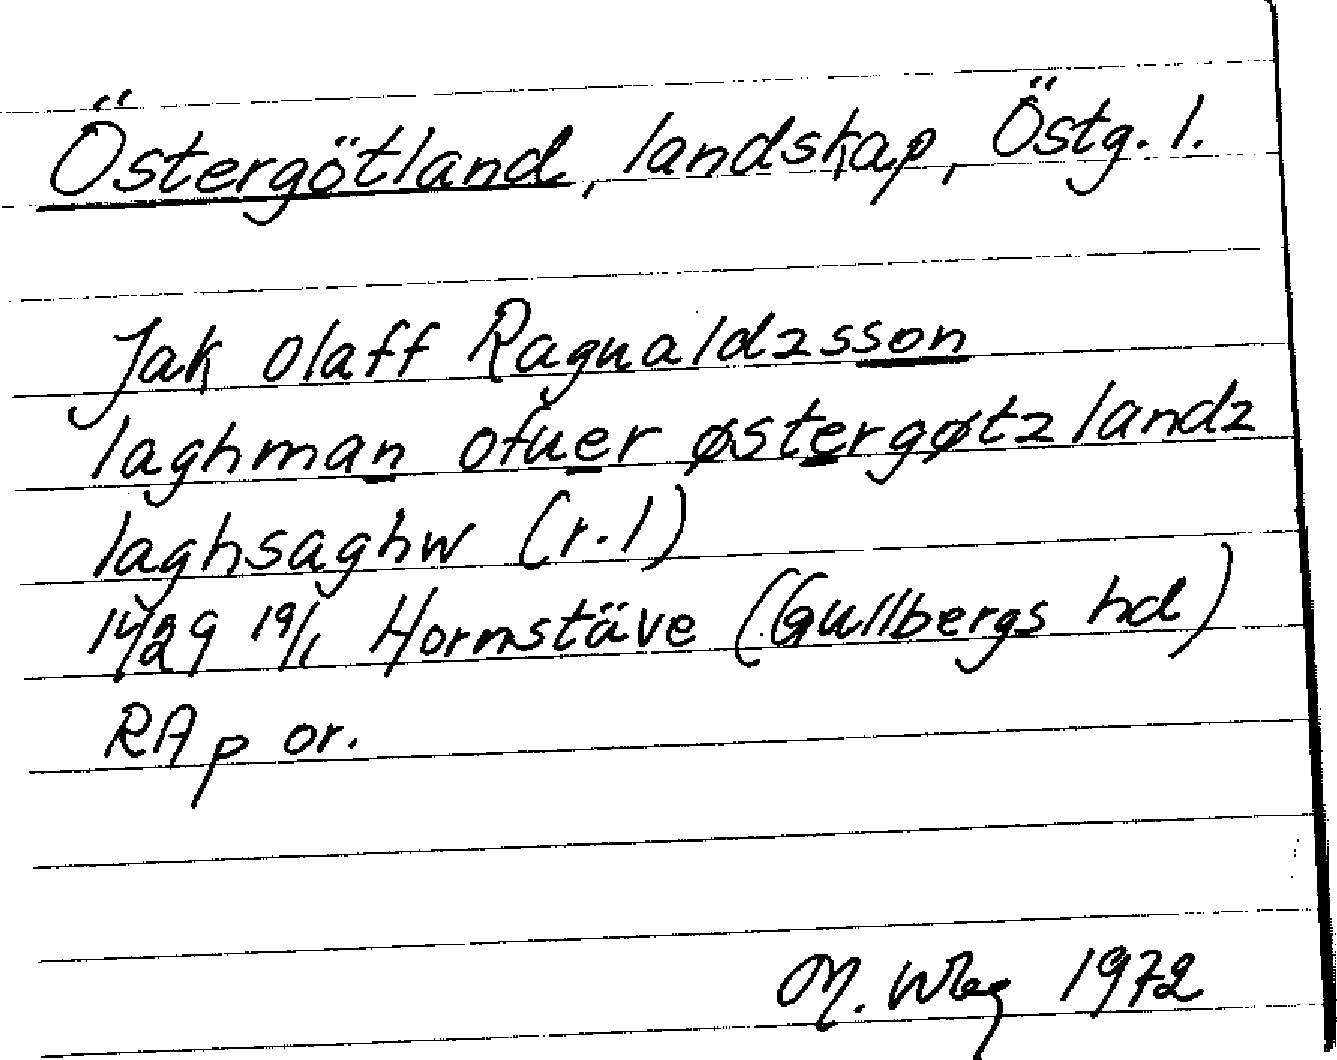 Östergötland, landskap, Östg. l.
Jak olaff Ragualdzsson
laghman ofuer østergøtzlandz
laghsaghw (r. 1)
1429 19/1 Hormstäve (Gullbergs hd)
RAp or.
M. Wbg 1972